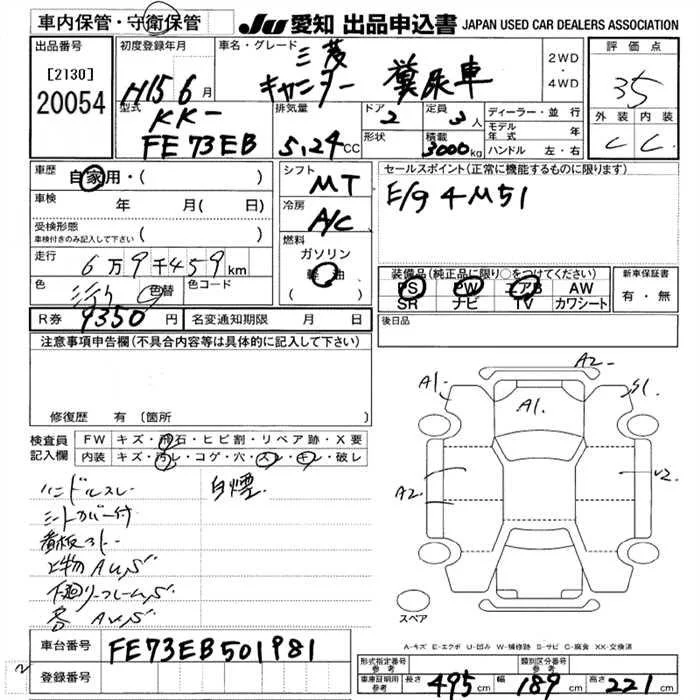 車内保管・守衛保管
JU 愛知 出品申込書 JAPAN USED CAR DEALERS ASSOCIATION
出品番号
[2130]
20054
初度登録年月
H15 6月
車名・グレード
三菱
キャンター 糞尿車
2WD
・
4WD
評価点
3.5
外装 内装
C C
型式
KK-
FE73EB
排気量
5,24cc
ドア
2
形状
定員
3人
積載
3000kg
ディーラー・並行
モデル年式 年
ハンドル 左・右
車歴
自家用・( )
車検 年 月( 日)
受検形態
車検付きのみ記入して下さい ( )
走行
6万9千459km
色
色替
色コード
シフト
MT
冷房
A/C
燃料
ガソリン
軽油
( )
セールスポイント(正常に機能するものに限ります)
E/g 4M51
装備品(純正品に限り○をつけてください)
PS PW エアB AW
SR ナビ TV カワシート
新車保証書
有・無
R券 9350円
名変通知期限 月 日
後日品
注意事項申告欄(不具合内容等は具体的に記入して下さい)
修復歴 有 〔箇所 〕
検査員
記入欄
FW キズ・飛石・ヒビ割・リペア跡・X要
内装 キズ・汚レ・コゲ・穴・スレ・キレ・破レ
ハンドルスレ
白煙
シートカバー付
上物AUS
下廻リフレームS
各AUS
A2
A1
S1
A1
A2
U2
スペア
A-キズ E-エクボ U-凹み W-補修跡 S-サビ C-腐食 XX-交換済
車台番号 FE73EB501981
登録番号
形式指定番号
参考
類別区分番号
参考
車庫証明用
参考
長さ 495cm 幅 189cm 高さ 221cm